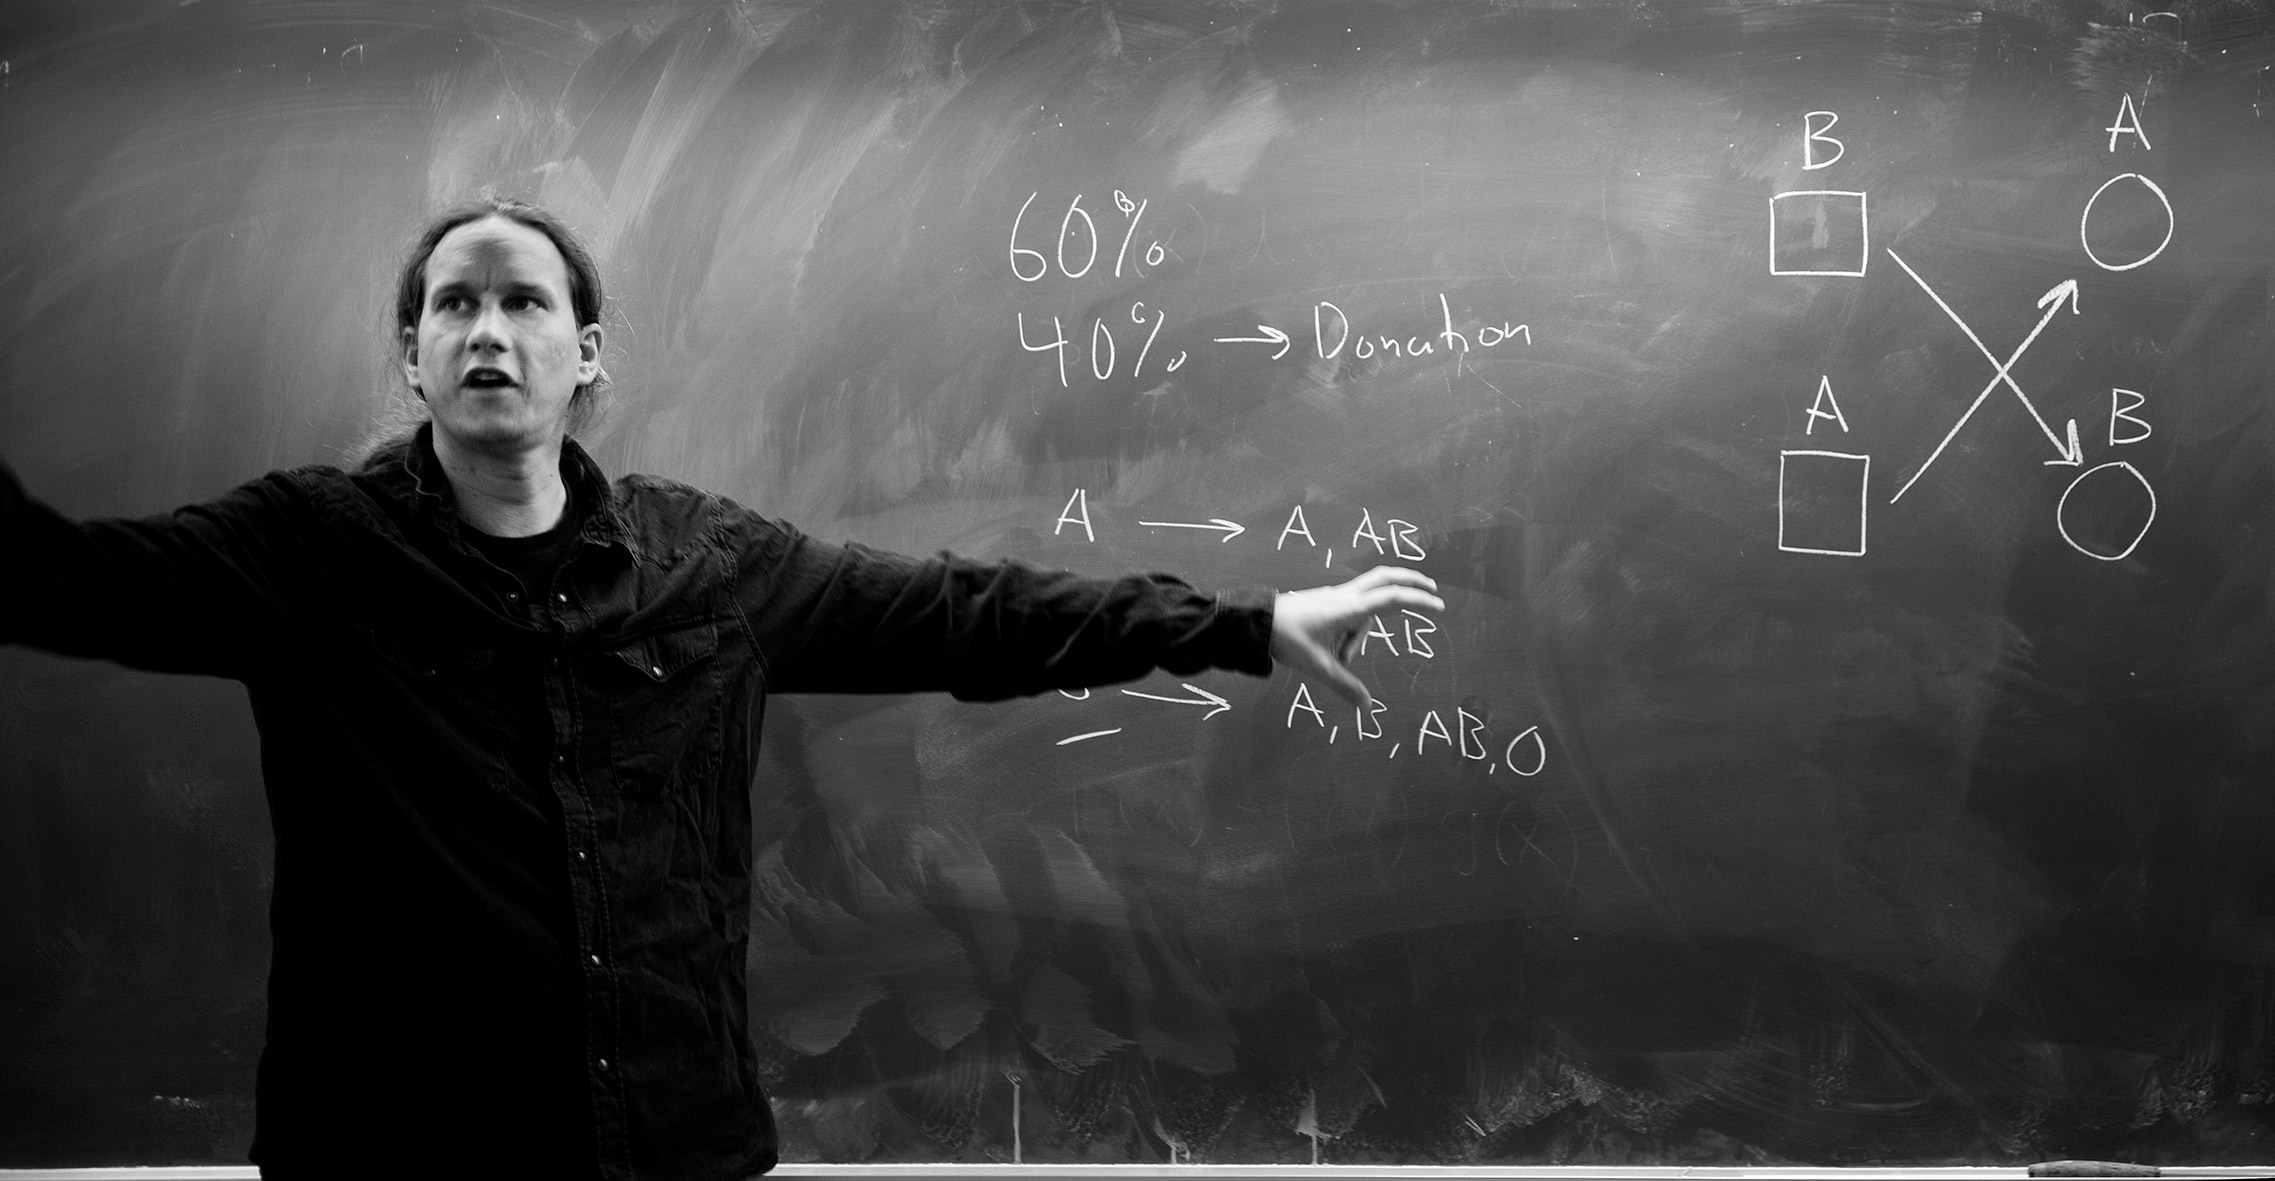 60%
40% → Donation
A → A, AB
AB
→ A, B, AB, O
B A
A B